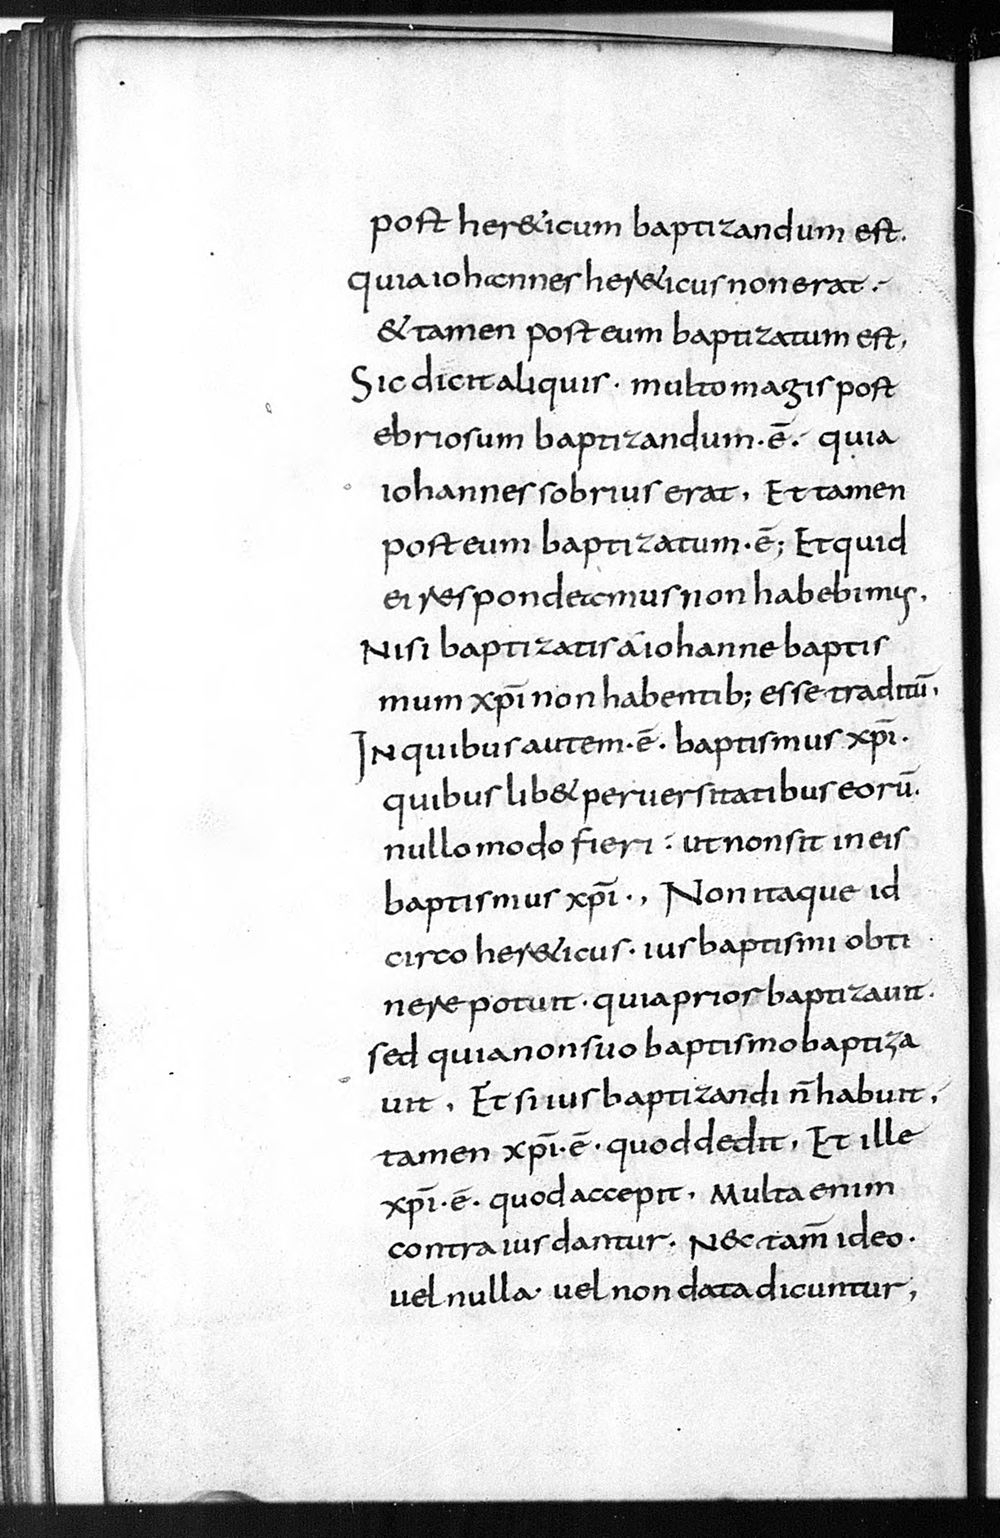 post her&icum baptizandum est.
quia iohannes her&icus non erat.
& tamen post eum baptizatum est,
Sic dicit aliquis. multo magis post
ebriosum baptizandum.ē. quia
iohannes sobrius erat, Et tamen
post eum baptizatum.ē; Et quid
ei respondeamus non habebimus,
Nisi baptizatis a iohanne baptis
mum xp̄i non habentib; esse traditū,
In quibus autem.ē. baptismus xp̄i.
quibus lib& peruersitatibus eorū.
nullo modo fieri: ut non sit in eis
baptismus xp̄i., Non itaque id
circo her&icus. ius baptismi obti
nere potuit. quia prior baptizauit.
sed quia non suo baptismo baptiza
uit, Et si ius baptizandi n̄ habuit,
tamen xp̄i.ē. quod dedit, Et ille
xp̄i.ē. quod accepit, Multa enim
contra ius dantur. Nec tam̄ ideo.
uel nulla. uel non data dicuntur,